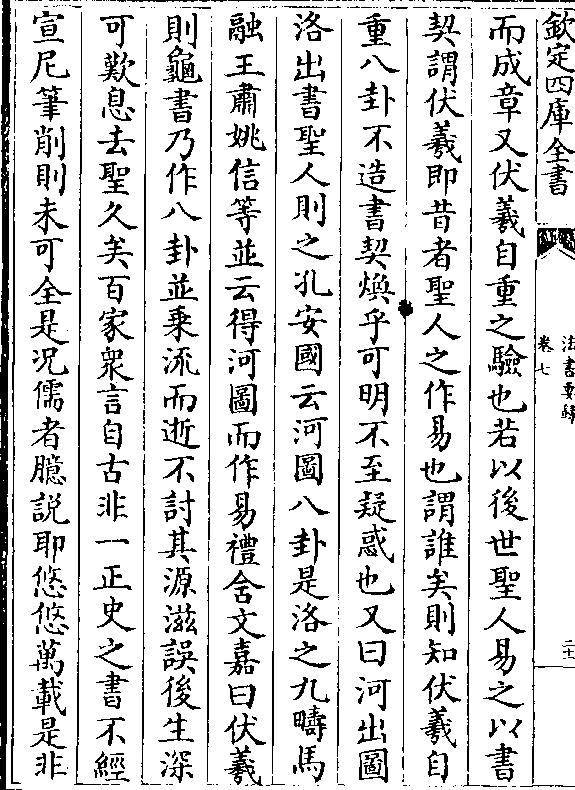 欽定四庫全書
法書要録
卷七
二十
而成章又伏羲自重之驗也若以後世聖人易之以書
契謂伏羲即昔者聖人之作易也謂誰矣則知伏羲自
重八卦不造書契煥乎可明不至疑惑也又曰河出圖
洛出書聖人則之孔安國云河圖八卦是洛之九疇馬
融王肅姚信等並云得河圖而作易禮含文嘉曰伏羲
則龜書乃作八卦並乗流而逝不討其源滋誤後生深
可歎息去聖久矣百家衆言自古非一正史之書不經
宣尼筆削則未可全是况儒者臆説耶悠悠萬載是非